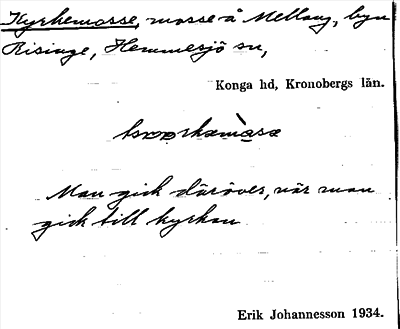 Kyrkemosse, mosse å Mellang, byn
Risinge, Hemmesjö sn,
Konga hd, Kronobergs län.
Man gick däröver, när man
gick till kyrkan
Erik Johannesson 1934.